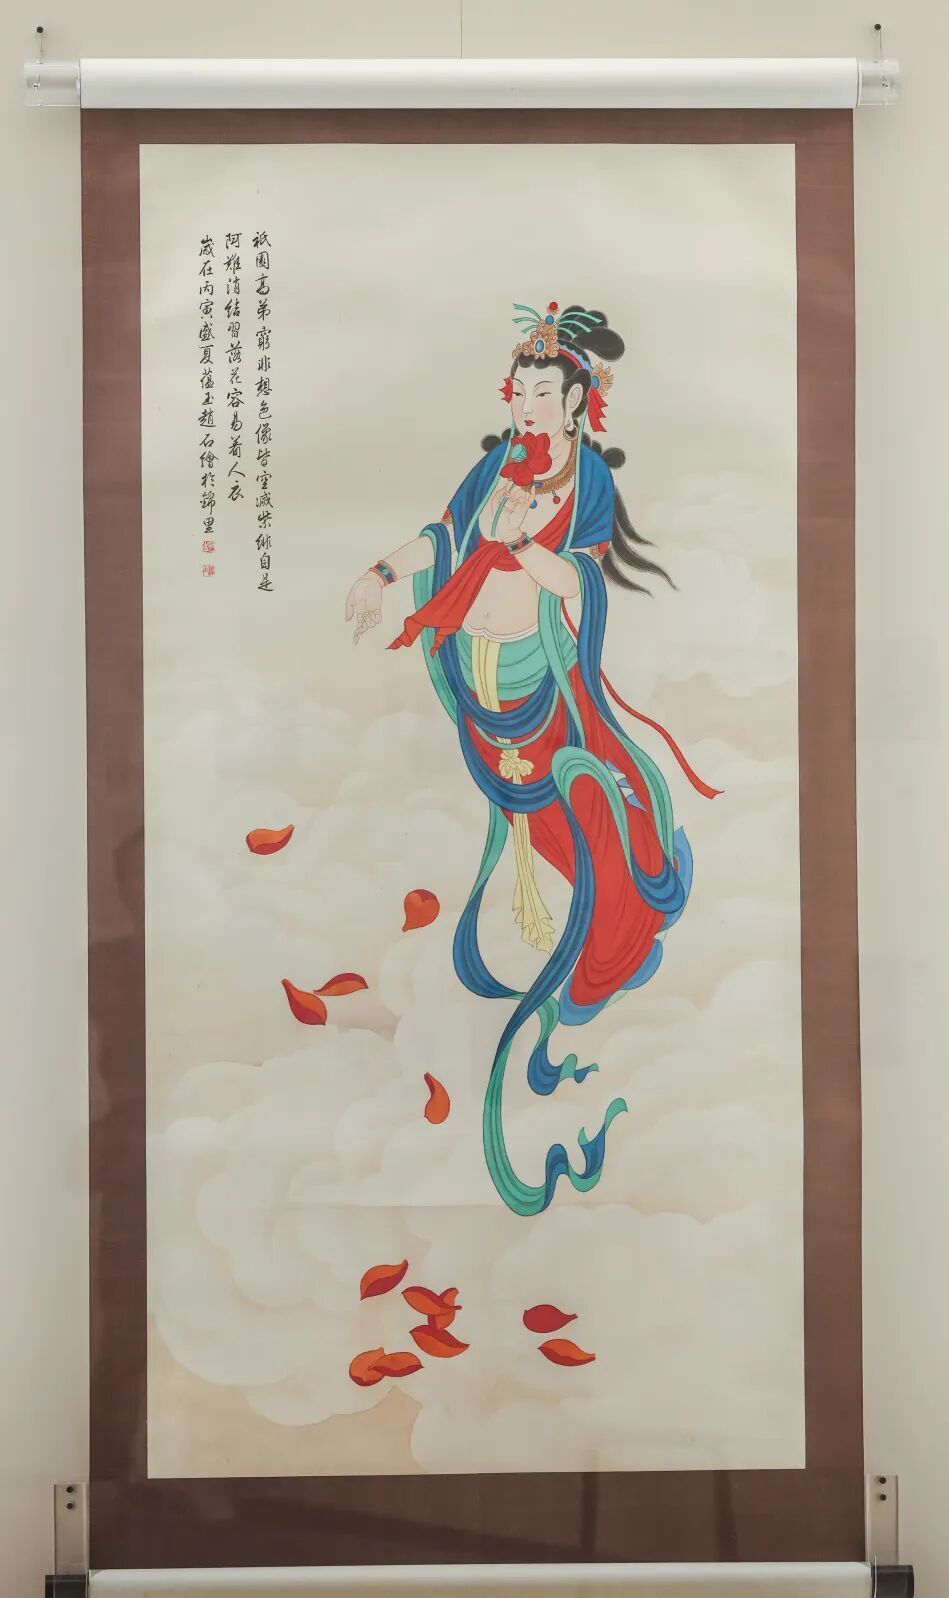 祇園高弟窮非想色像皆空滅紫緋自是
阿難消結習落花容易着人衣
歲在丙寅盛夏蘊玉趙石繪於錦里